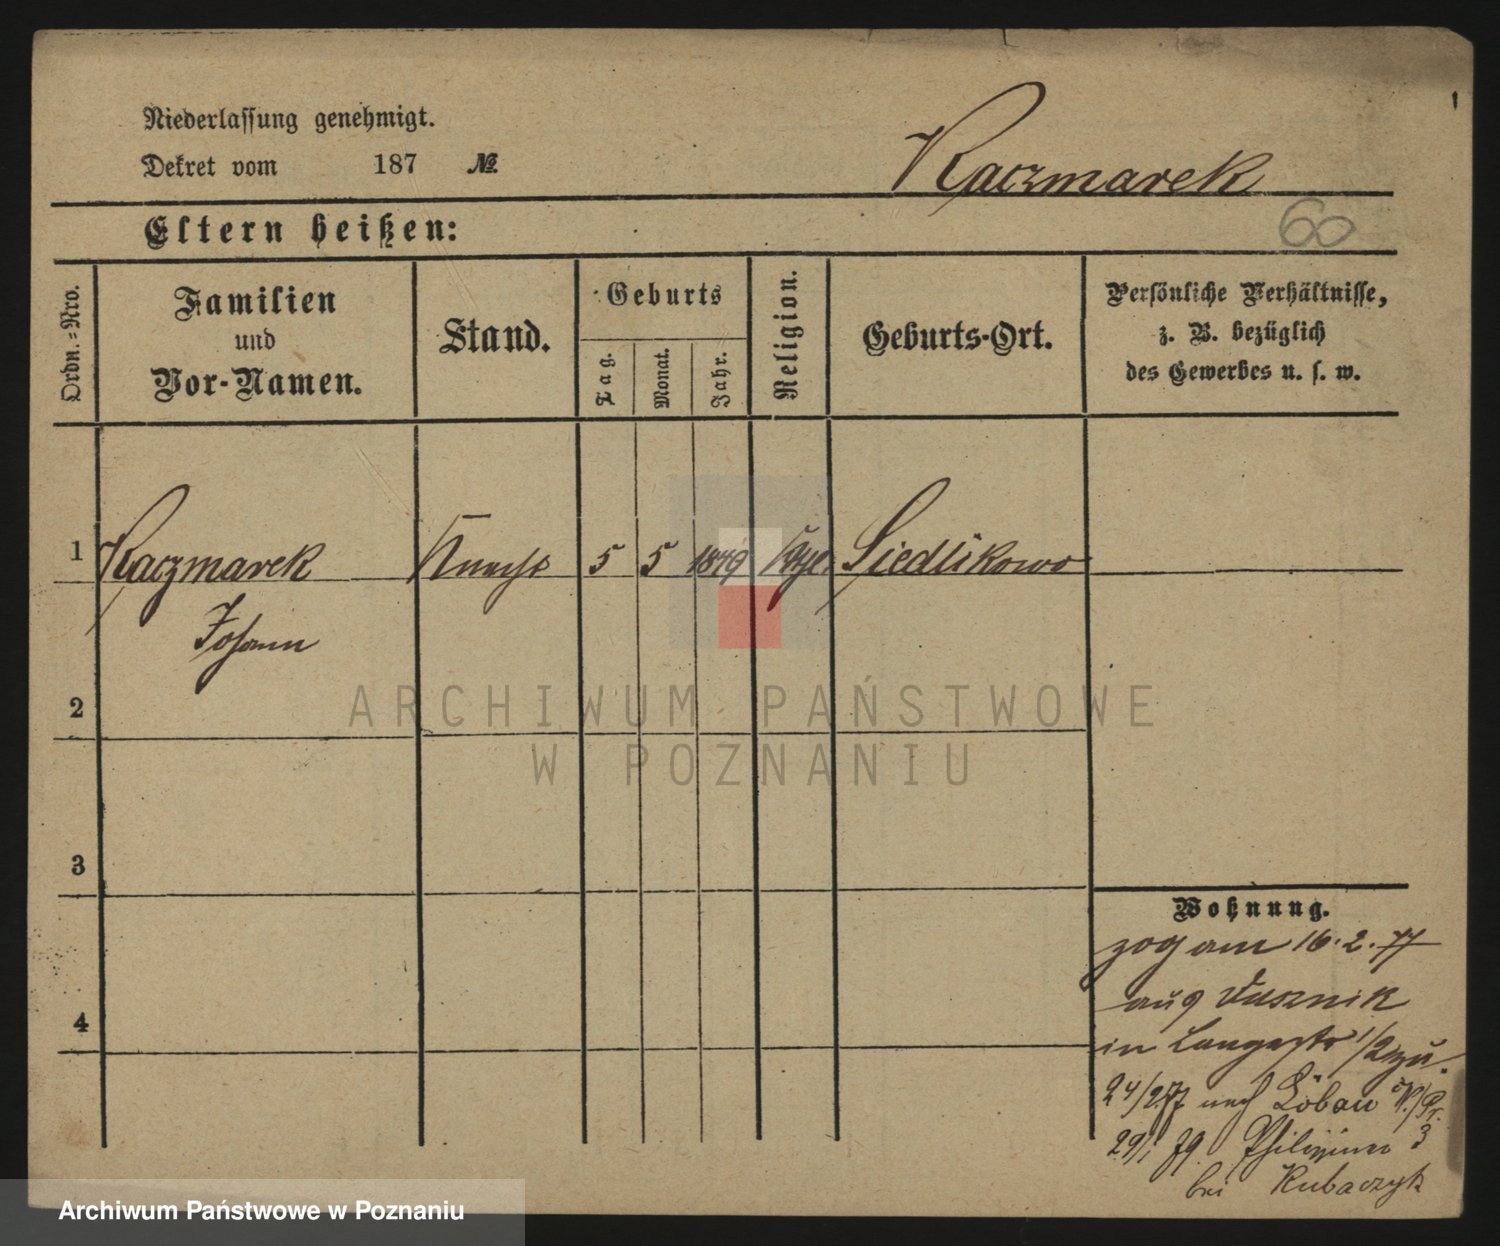 Niederlassung genehmigt.
Dekret vom 187 №
Kaczmarek
60
Eltern heißen:
Ordn.-Nro.
Familien
und
Vor-Namen.
Stand.
Geburts
Tag.
Monat.
Jahr.
Religion.
Geburts-Ort.
Persönliche Verhältnisse,
z. B. bezüglich
des Gewerbes u. s. w.
1 Kaczmarek Knecht 5 5 1849 Siedlikowo
Johann
2
ARCHIWUM PAŃSTWOWE
W POZNANIU
3
4
Wohnung.
zog am 16. 2. 77
aus Dusznik
in Langestr 1/2 zu.
24/2 77 nach Löbau W./Pr.
29/1 79 3
bei Kubaczyk
Archiwum Państwowe w Poznaniu